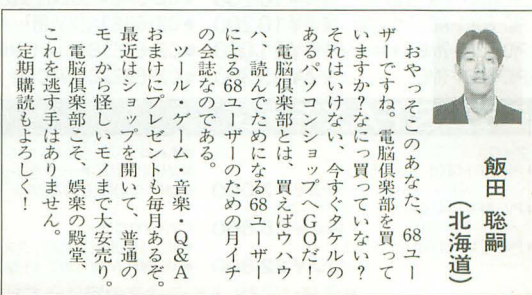 飯田 聡嗣
（北海道）
おやっそこのあなた、68ユー
ザーですね。電脳倶楽部を買って
いますか？なにっ買っていない？
それはいけない、今すぐタケルの
あるパソコンショップへGOだ！
電脳倶楽部とは、買えばウハウ
ハ、読んでためになる68ユーザー
による68ユーザーのための月イチ
の会誌なのである。
ツール・ゲーム・音楽・Q&A
おまけにプレゼントも毎月あるぞ。
最近はショップを開いて、普通の
モノから怪しいモノまで大安売り。
電脳倶楽部こそ、娯楽の殿堂、
これを逃す手はありません。
定期購読もよろしく！